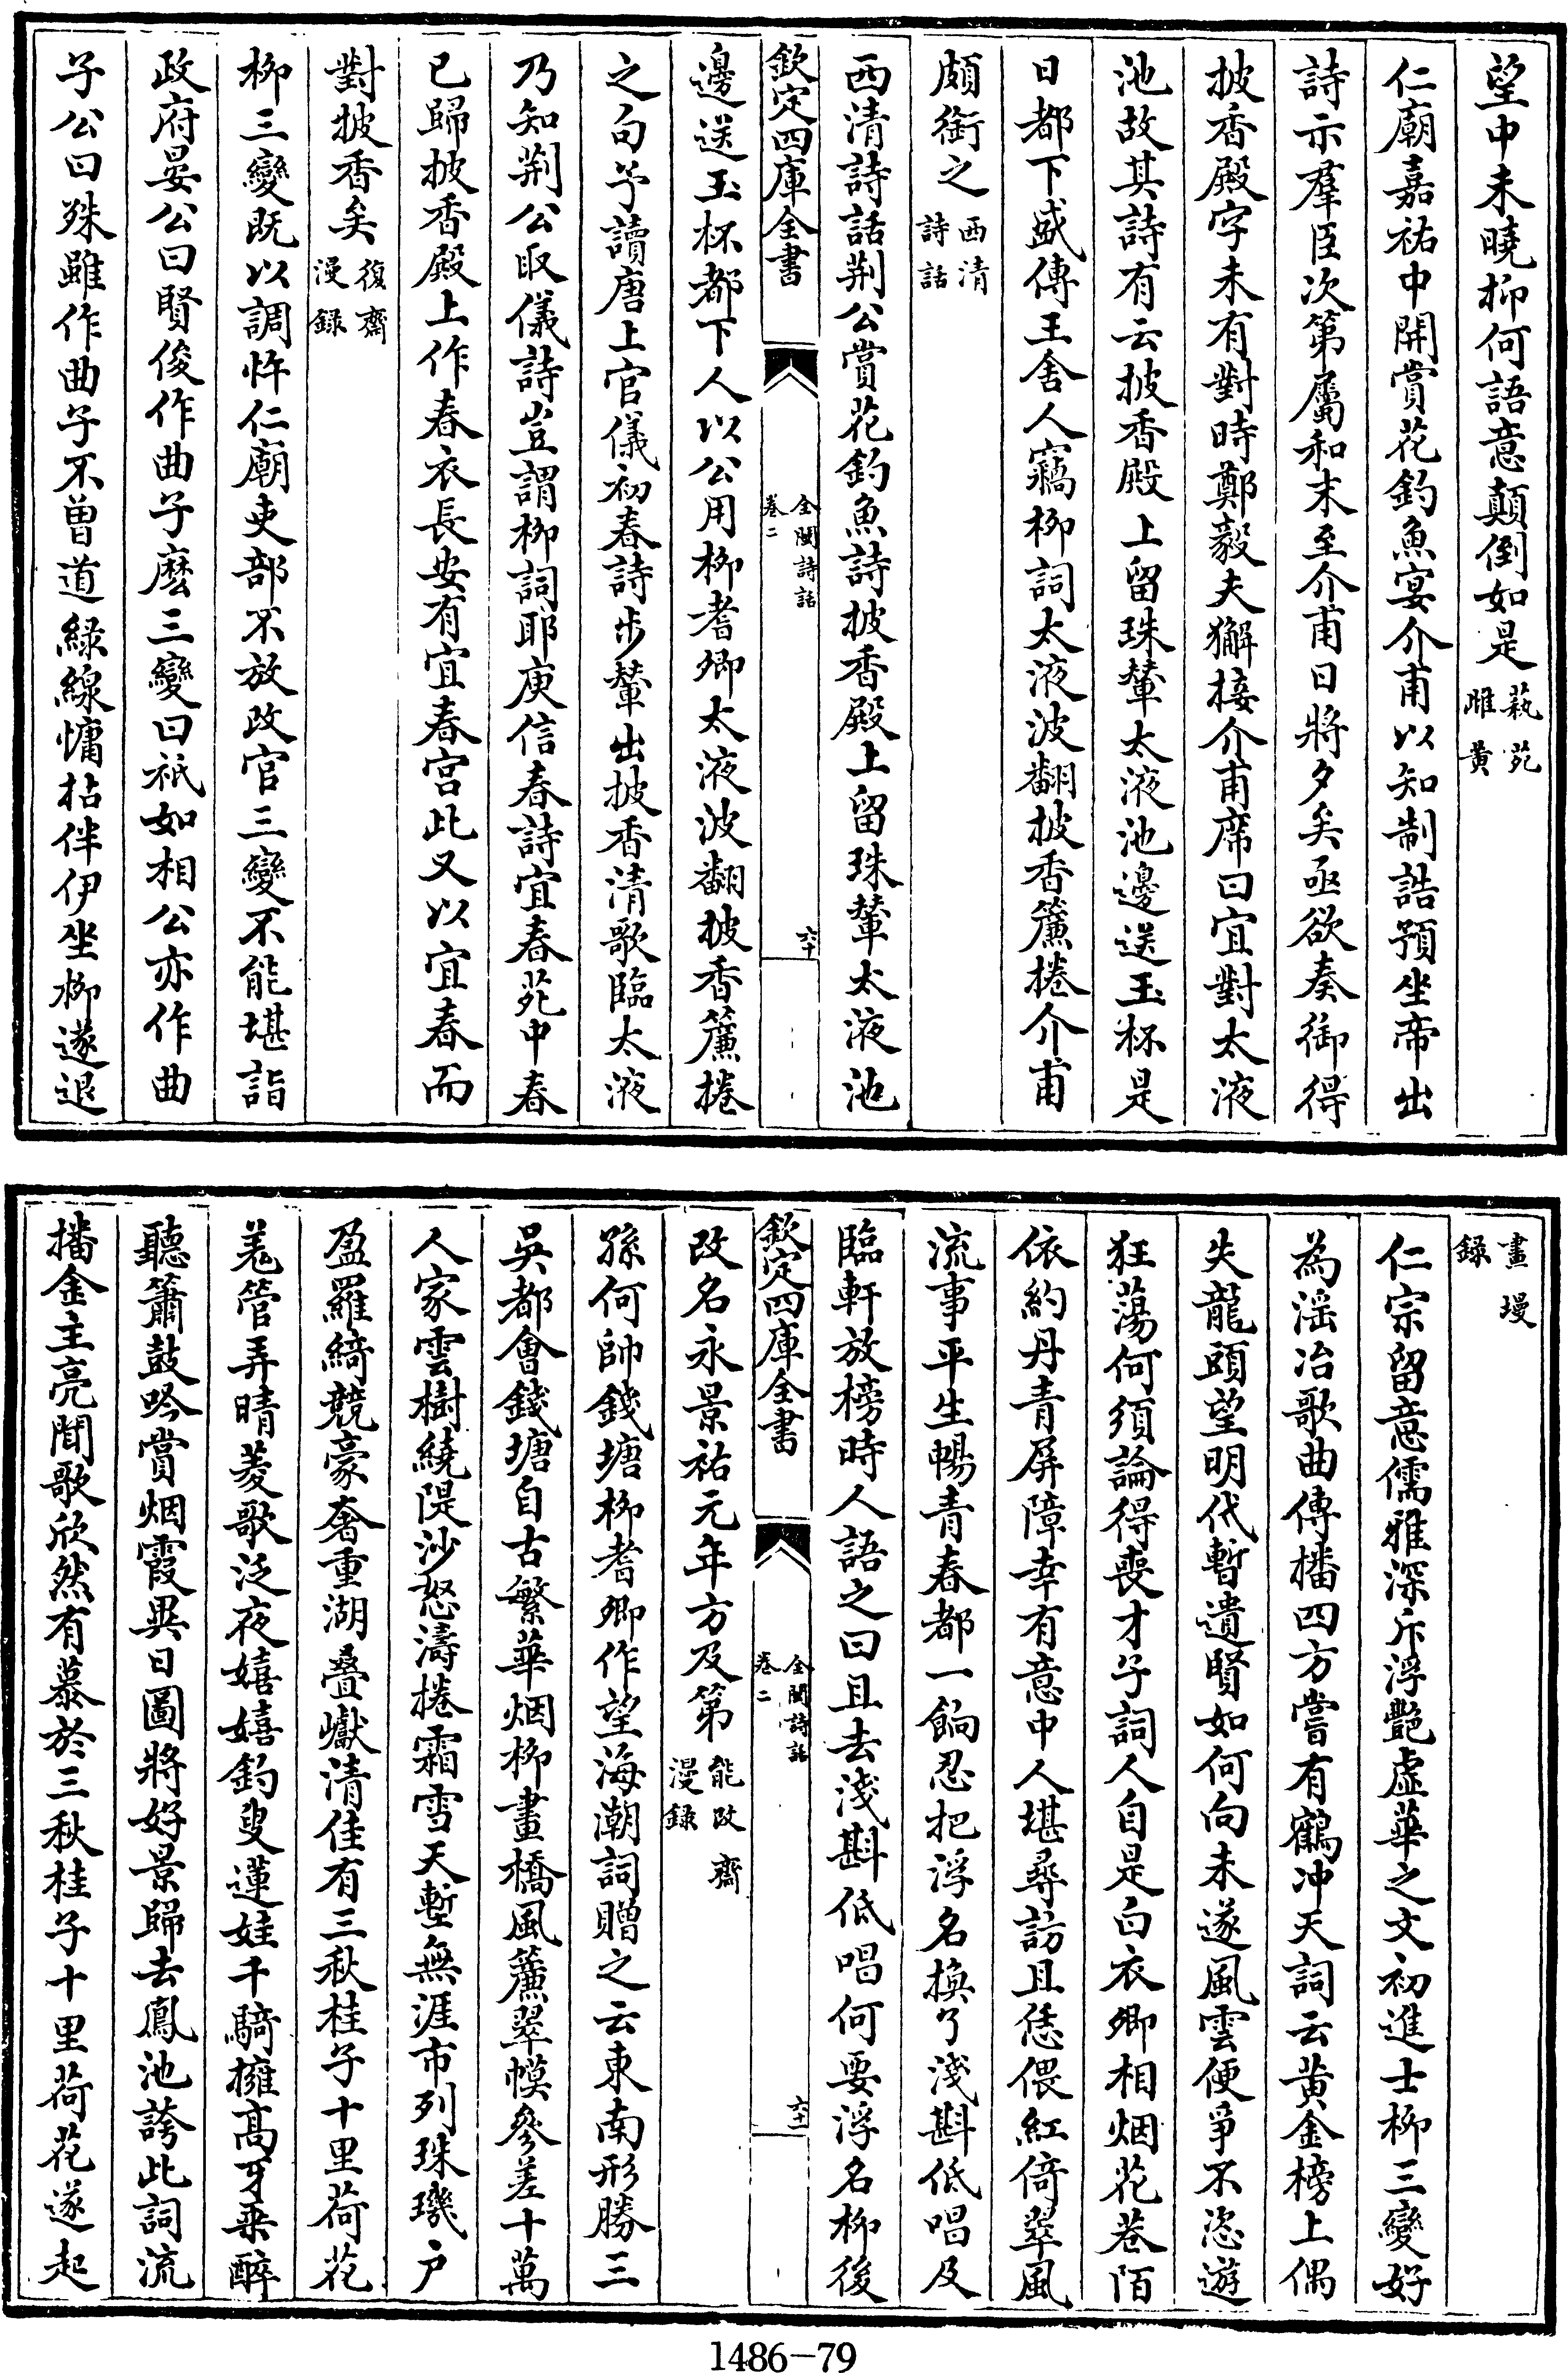 望中未曉柳何語意顛倒如是 蓺苑雌黄
仁廟嘉祐中開賞花釣魚宴介甫以知制誥預坐帝出
詩示羣臣次第屬和末至介甫日將夕矣亟欲奏御得
披香殿字未有對時鄭毅夫獬接介甫席曰宜對太液
池故其詩有云披香殿上留珠輦太液池邊送玉杯是
日都下盛傳王舍人竊柳詞太液波翻披香簾捲介甫
頗銜之 西清詩話
西清詩話荆公賞花釣魚詩披香殿上留珠輦太液池
欽定四庫全書 全閩詩話 卷二 六十
邊送玉杯都下人以公用柳耆卿太液波翻披香簾捲
之句予讀唐上官儀初春詩步輦出披香清歌臨太液
乃知荆公取儀詩豈謂柳詞耶庾信春詩宜春苑中春
已歸披香殿上作春衣長安有宜春宫此又以宜春而
對披香矣 復齋漫録
柳三變既以調忤仁廟吏部不放改官三變不能堪詣
政府晏公曰賢俊作曲子麽三變曰祇如相公亦作曲
子公曰殊雖作曲子不曽道緑線慵拈伴伊坐柳遂退
畫墁録
仁宗留意儒雅深斥浮艷虛華之文初進士柳三變好
為淫冶歌曲傳播四方嘗有鶴冲天詞云黄金榜上偶
失龍頭望明代暫遺賢如何向未遂風雲便爭不恣遊
狂蕩何須論得喪才子詞人自是白衣卿相烟花巷陌
依約丹青屏障幸有意中人堪尋訪且恁偎紅倚翠風
流事平生暢青春都一餉忍把浮名換了淺斟低唱及
臨軒放榜時人語之曰且去淺斟低唱何要浮名柳後
欽定四庫全書 全閩詩話 卷二 六十一
改名永景祐元年方及第 能改齋漫録
孫何帥錢塘柳耆卿作望海潮詞贈之云東南形勝三
吳都會錢塘自古繁華烟柳畫橋風簾翠幙參差十萬
人家雲樹繞隄沙怒濤捲霜雪天塹無涯市列珠璣户
盈羅綺競豪奢重湖疊巘清佳有三秋桂子十里荷花
羌管弄晴菱歌泛夜嬉嬉釣叟蓮娃千騎擁高牙乘醉
聽簫鼓吟賞烟霞異日圖將好景歸去鳳池誇此詞流
播金主亮聞歌欣然有慕於三秋桂子十里荷花遂起
1486-79